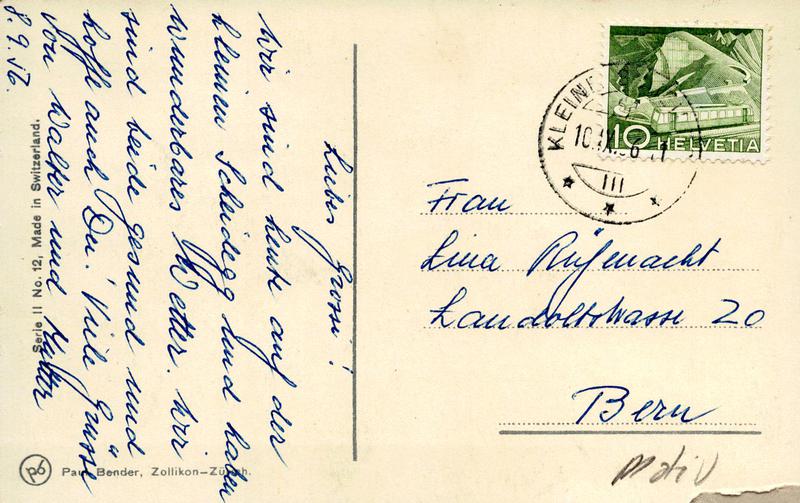 Liebes Grossi!
Wir sind heute auf der
kleinen Scheidegg und haben
wunderbares Wetter. Wir
sind beide gesund und
hoffe auch Du. Viele Grüsse
von Walter und Mutter
8.9.56.
Serie II No. 12, Made in Switzerland.
p6
Paul Bender, Zollikon-Zürich.
KLEINE
10.IX.56
III
10 HELVETIA
Frau
Lina Rüfenacht
Landoltstrasse 20
Bern
Motiv